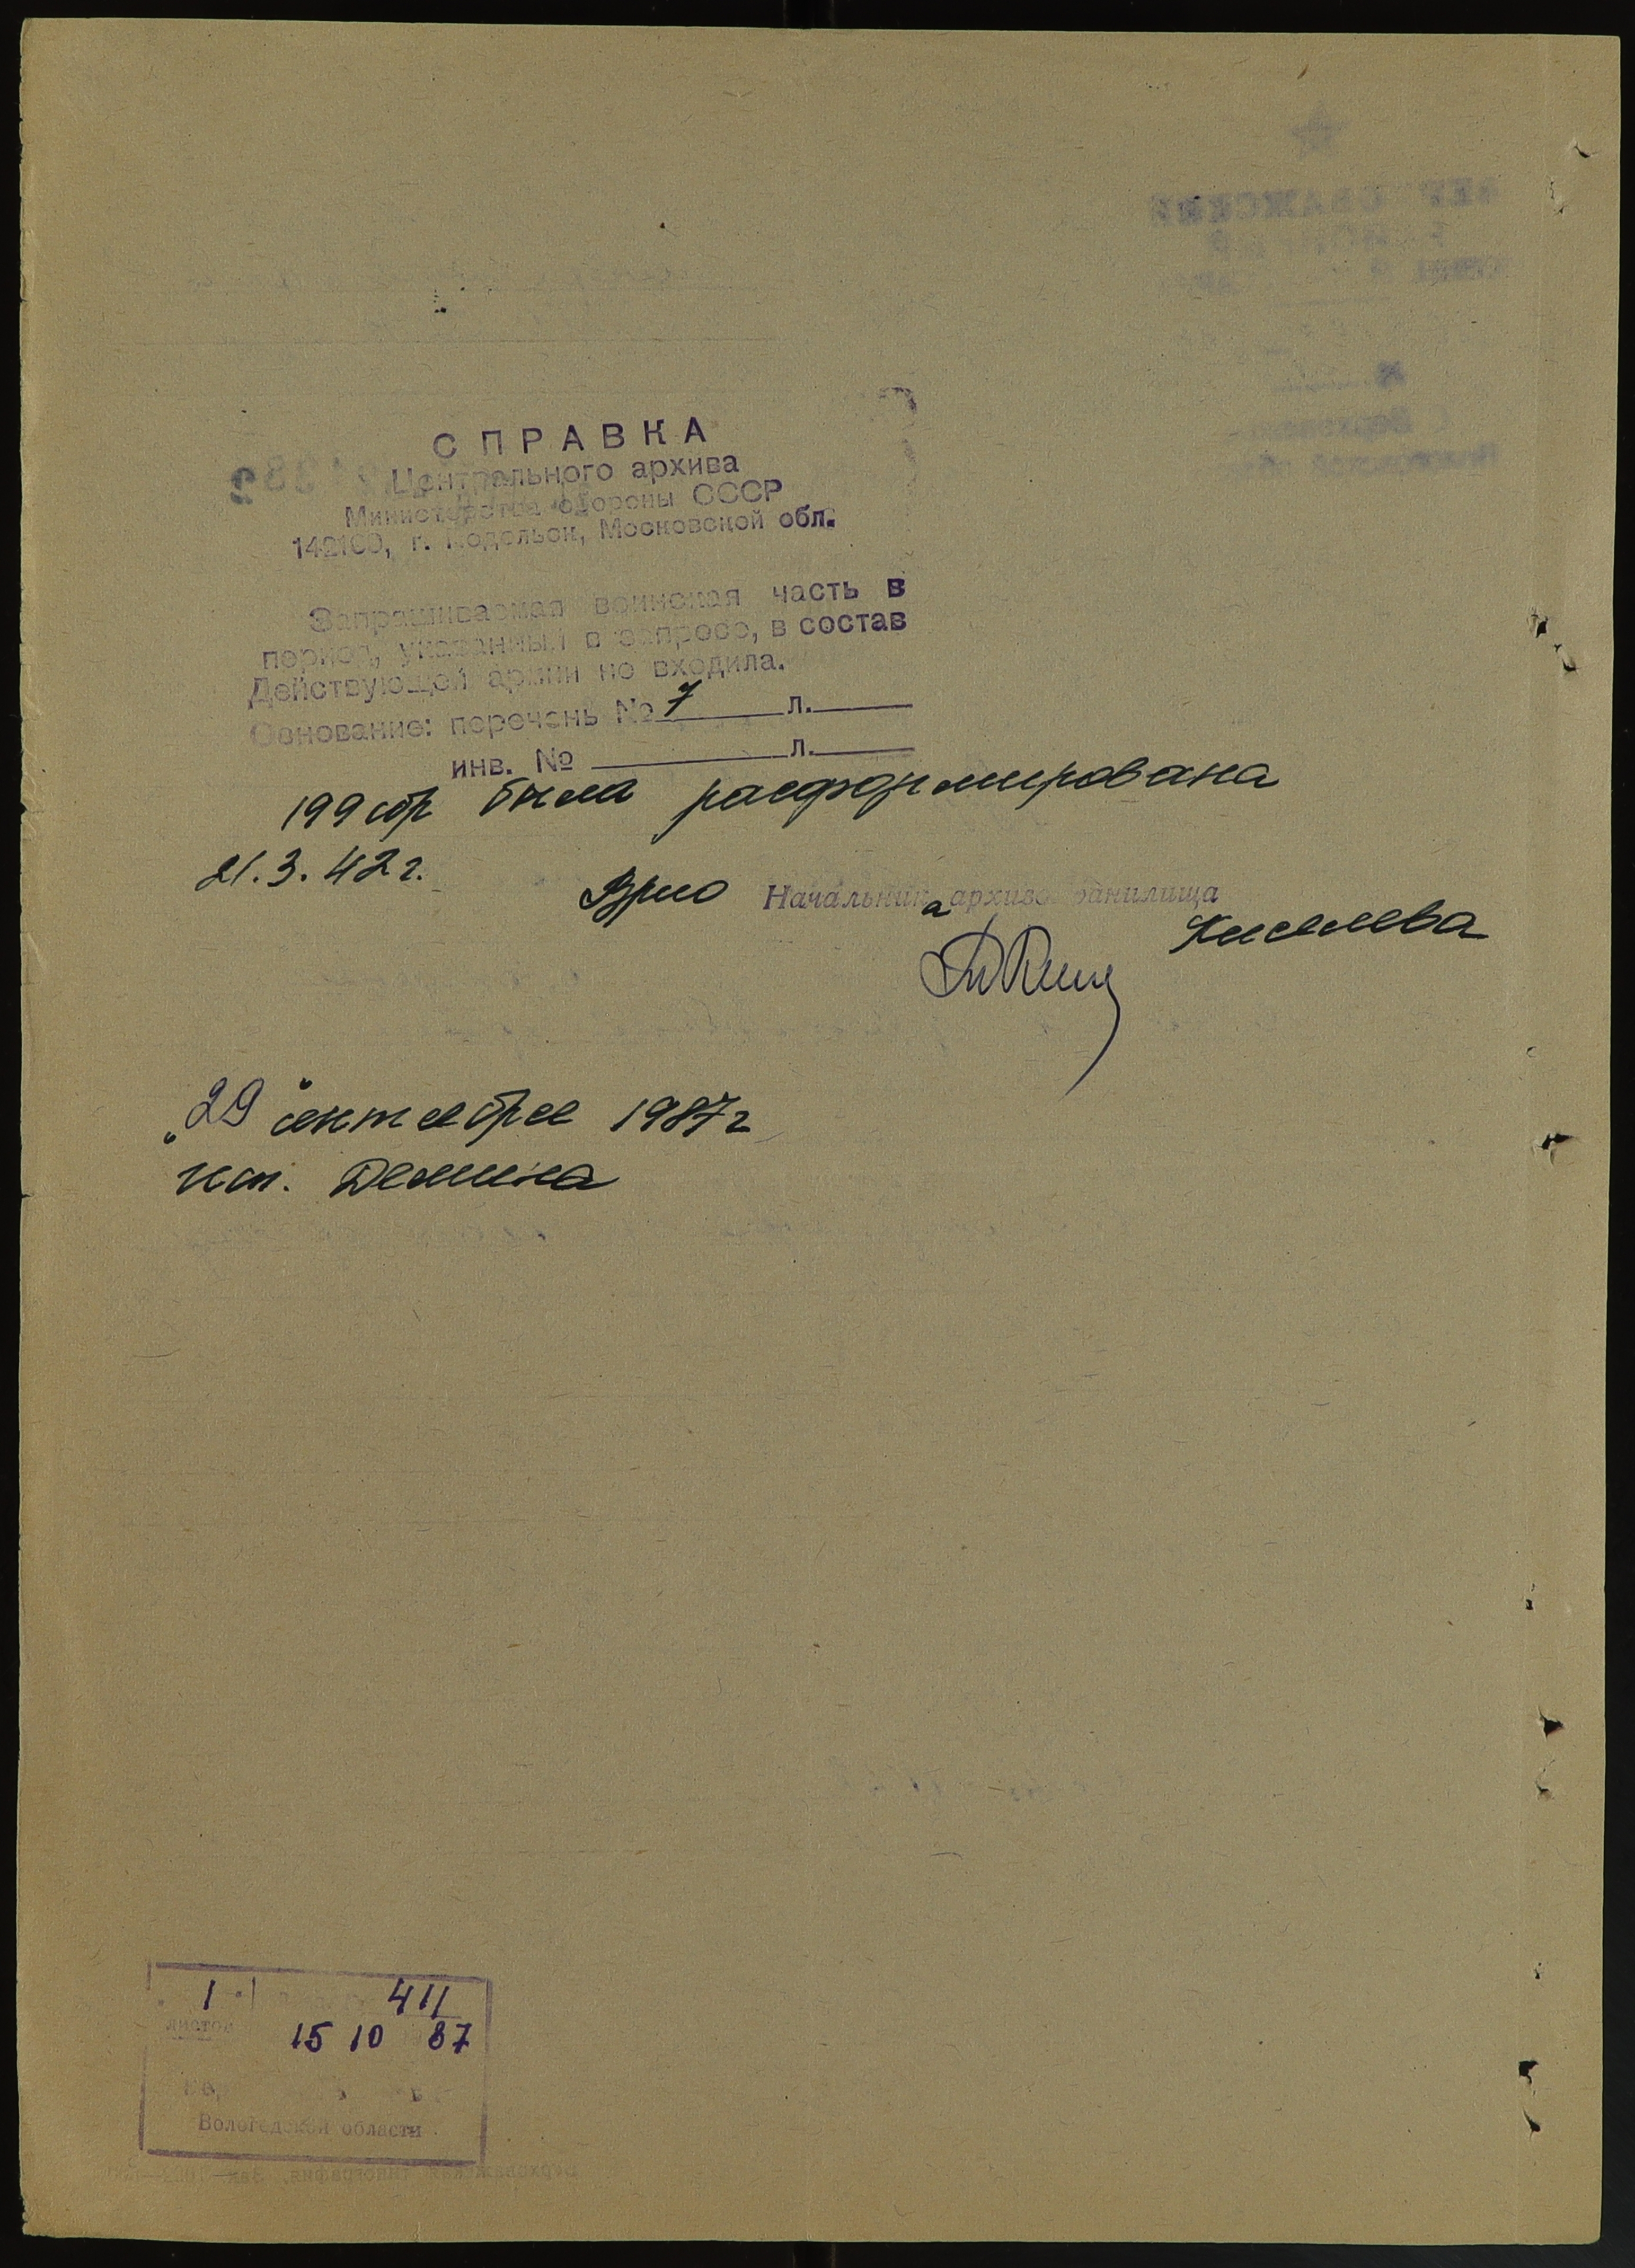 СПРАВКА
Центрального архива
Министерства обороны СССР
142100, г. Подольск, Московской обл.
Запрашиваемая воинская часть в
период, указанный в запросе, в состав
Действующей армии не входила.
Основание: перечень № 7 л.
инв. № л.
199 сбр была расформирована
21.3.42г.
Врио Начальника архивохранилища
Киселева
"29" сентября 1987г
исп. Демина
1 411
листов 15 10 87
Вологодской области